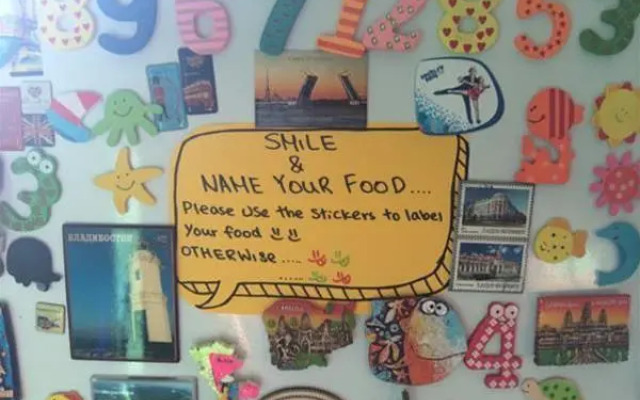 8 9 6 7 1 2 8 5 3
SMILE
&
NAME YOUR FOOD....
Please use the stickers to label
Your food
OTHERWISE ....
.....
3
ВЛАДИВОСТОК
4